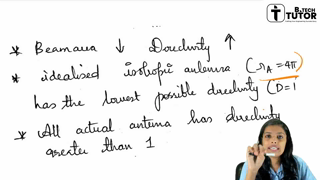 B.TECH
TUTOR
* Beamarea ↓ Directivity ↑
* idealised isotropic antenna (ΩA = 4π)
has the lowest possible directivity (D=1
* All actual antenna has directivity
greater than 1